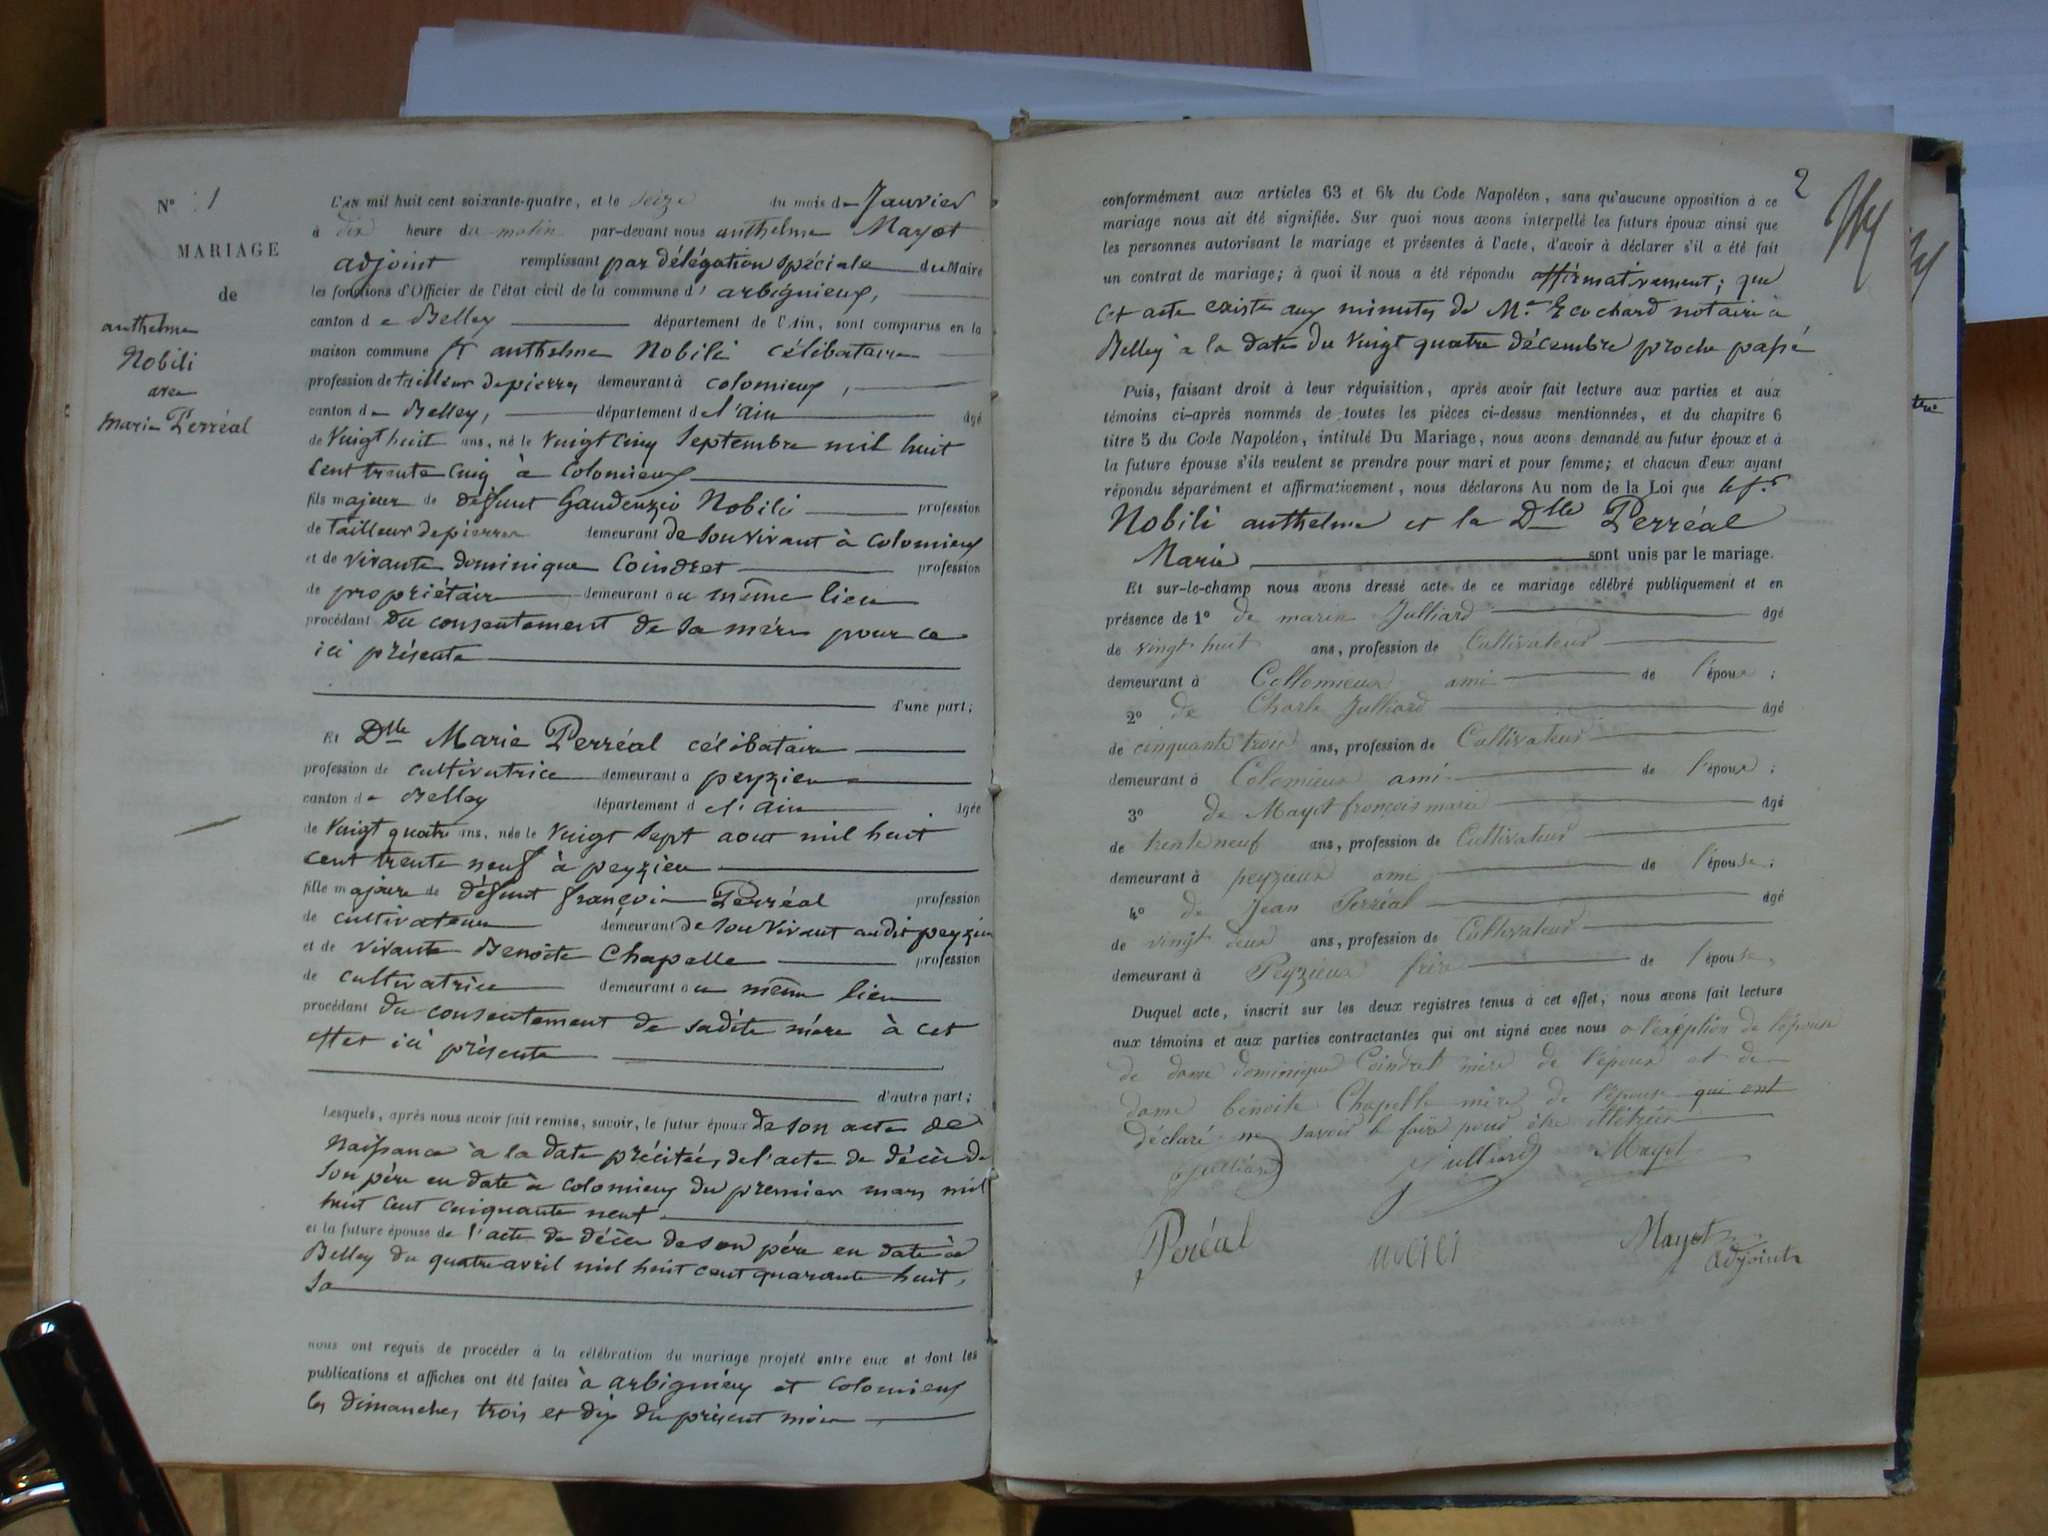 N° 1
MARIAGE
de
anthelme
Nobili
avec
Marie Perréal
L'AN mil huit cent soixante-quatre, et le seize du mois de Janvier
à dix heure du matin par-devant nous anthelme Mayot
adjoint remplissant par délégation spéciale du Maire
les fonctions d'Officier de l'état civil de la commune d' arbignieux,
canton de Belley département de l'Ain, sont comparus en la
maison commune Sr anthelme Nobili célibataire
profession de tailleur de pierres demeurant à colomieux,
canton de Belley, département de l'ain âgé
de vingt huit ans, né le vingt cinq Septembre mil huit
cent trente cinq à Colomieux
fils majeur de défunt Gaudenzio Nobili profession
de tailleur de pierres demeurant de son vivant à colomieux
et de vivante dominique Coindret profession
de propriétaire demeurant au même lieu
procédant du consentement de sa mère pour ce
ici présente
d'une part;
Et Dlle Marie Perréal célibataire
profession de cultivatrice demeurant à peyzieu
canton de Belley département de l'ain âgée
de vingt quatre ans, née le vingt sept aout mil huit
cent trente neuf à peyzieu
fille majeure de défunt françois Perréal profession
de cultivateur demeurant de son vivant audit peyzieu
et de vivante Benoîte Chapelle profession
de cultivatrice demeurant au même lieu
procédant du consentement de sadite mère à cet
effet ici présente
d'autre part;
Lesquels, après nous avoir fait remise, savoir, le futur époux de son acte de
naissance à la date précitée, de l'acte de décès de
son père en date à colomieux du premier mars mil
huit cent cinquante neuf
et la future épouse de l'acte de décès de son père en date à
Belley du quatre avril mil huit cent quarante huit,
sa
nous ont requis de procéder à la célébration du mariage projeté entre eux et dont les
publications et affiches ont été faites à arbignieux et colomieux
les dimanches trois et dix du présent mois
2
conformément aux articles 63 et 64 du Code Napoléon, sans qu'aucune opposition à ce
mariage nous ait été signifiée. Sur quoi nous avons interpellé les futurs époux ainsi que
les personnes autorisant le mariage et présentes à l'acte, d'avoir à déclarer s'il a été fait
un contrat de mariage; à quoi il nous a été répondu affirmativement; que
cet acte existe aux minutes de Me Ecochard notaire à
Belley à la date du vingt quatre décembre proche passé
Puis, faisant droit à leur réquisition, après avoir fait lecture aux parties et aux
témoins ci-après nommés de toutes les pièces ci-dessus mentionnées, et du chapitre 6
titre 5 du Code Napoléon, intitulé Du Mariage, nous avons demandé au futur époux et à
la future épouse s'ils veulent se prendre pour mari et pour femme; et chacun d'eux ayant
répondu séparément et affirmativement, nous déclarons Au nom de la Loi que le sr
Nobili anthelme et la Dlle Perréal
Marie sont unis par le mariage.
Et sur-le-champ nous avons dressé acte de ce mariage célébré publiquement et en
présence de 1° de marin Julliard âgé
de vingt huit ans, profession de Cultivateur
demeurant à Collomieux ami de l'époux;
2° de Charle Julliard âgé
de cinquante trois ans, profession de Cultivateur
demeurant à Colomieux ami de l'époux;
3° de Mayot françois marie âgé
de trente neuf ans, profession de Cultivateur
demeurant à peyzieux ami de l'épouse;
4° de Jean Perréal âgé
de vingt deux ans, profession de Cultivateur
demeurant à Peyzieux frère de l'épouse,
Duquel acte, inscrit sur les deux registres tenus à cet effet, nous avons fait lecture
aux témoins et aux parties contractantes qui ont signé avec nous a l'exéption de l'épouse
de dame dominique Coindret mère de l'époux et de
dame benoite Chapelle mère de l'épouse qui ont
déclaré ne savoir le faire pour être illétrées
Julliard Julliard Mayot
Peréal nobili Mayot
adjoint